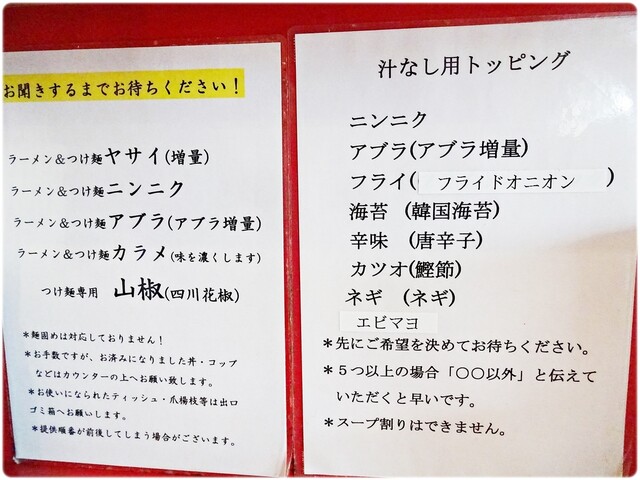 お聞きするまでお待ちください！
ラーメン＆つけ麺ヤサイ(増量)
ラーメン＆つけ麺ニンニク
ラーメン＆つけ麺アブラ(アブラ増量)
ラーメン＆つけ麺カラメ(味を濃くします)
つけ麺専用 山椒(四川花椒)
＊麺固めは対応しておりません！
＊お手数ですが、お済みになりました丼・コップ
などはカウンターの上へお願い致します。
＊お使いになられたティッシュ・爪楊枝等は出口
ゴミ箱へお願いします。
＊提供順番が前後してしまう場合がございます。
汁なし用トッピング
ニンニク
アブラ(アブラ増量)
フライ(フライドオニオン)
海苔 (韓国海苔)
辛味 (唐辛子)
カツオ(鰹節)
ネギ (ネギ)
エビマヨ
＊先にご希望を決めてお待ちください。
＊５つ以上の場合「〇〇以外」と伝えて
いただくと早いです。
＊スープ割りはできません。